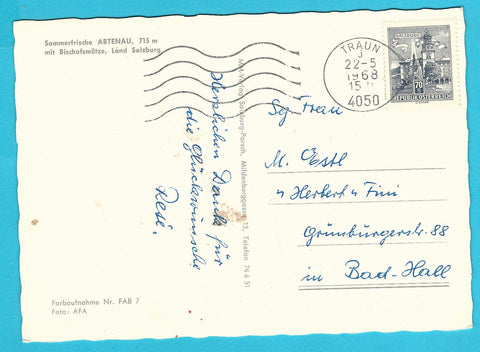 Sommerfrische ABTENAU, 715 m
mit Bischofsmütze, Land Salzburg
Herzlichen Dank für
die Glückwünsche
Resi.
Farbaufnahme Nr. FAB 7
Foto: AFA
Salzburg-Parsch, Mildenburggasse 13, Telefon 76 6 51
TRAUN
22-5
1968
4050
SALZBURG
70
REPUBLIK ÖSTERREICH
Sg. Frau
M. Estl
u Herbert u Fini
Grünburgerstr. 88
in Bad-Hall